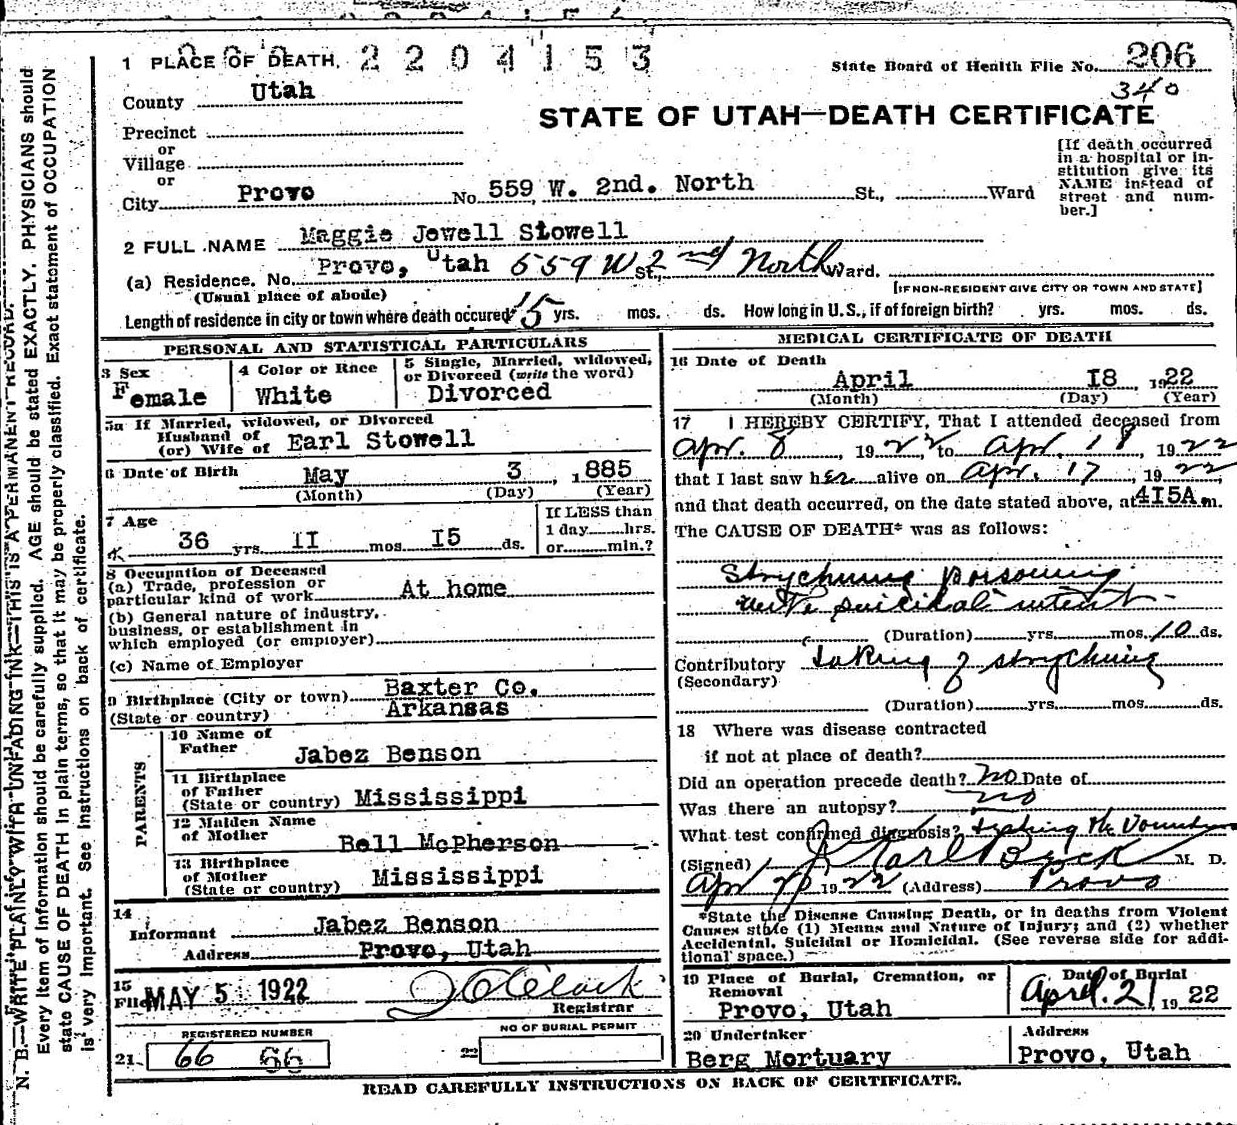 1 PLACE OF DEATH. 2204153
State Board of Health File No. 206
340
County Utah
STATE OF UTAH—DEATH CERTIFICATE
Precinct
or
Village
or
City Provo No. 559 W. 2nd. North St., Ward
[If death occurred
in a hospital or in-
stitution give its
NAME instead of
street and num-
ber.]
2 FULL NAME Maggie Jewell Stowell
(a) Residence. No. Provo, Utah 559 W 2nd North St., Ward.
(Usual place of abode) [IF NON-RESIDENT GIVE CITY OR TOWN AND STATE]
Length of residence in city or town where death occured 15 yrs. mos. ds. How long in U.S., if of foreign birth? yrs. mos. ds.
PERSONAL AND STATISTICAL PARTICULARS
3 Sex
Female
4 Color or Race
White
5 Single, Married, widowed,
or Divorced (write the word)
Divorced
5a If Married, widowed, or Divorced
Husband of
(or) Wife of Earl Stowell
6 Date of Birth May 3, 1885
(Month) (Day) (Year)
7 Age
36 yrs. II mos. I5 ds.
If LESS than
1 day hrs.
or min.?
8 Occupation of Deceased
(a) Trade, profession or
particular kind of work At home
(b) General nature of industry,
business, or establishment in
which employed (or employer)
(c) Name of Employer
9 Birthplace (City or town) Baxter Co.
(State or country) Arkansas
PARENTS
10 Name of
Father Jabez Benson
11 Birthplace
of Father
(State or country) Mississippi
12 Maiden Name
of Mother Bell McPherson
13 Birthplace
of Mother
(State or country) Mississippi
14
Informant Jabez Benson
Address Provo, Utah
15
Filed MAY 5 1922
Registrar
REGISTERED NUMBER
21 66 66
NO OF BURIAL PERMIT
22
MEDICAL CERTIFICATE OF DEATH
16 Date of Death
April I8, 1922
(Month) (Day) (Year)
17 I HEREBY CERTIFY, That I attended deceased from
Apr. 8, 1922, to Apr. 18, 1922
that I last saw her alive on Apr. 17, 1922
and that death occurred, on the date stated above, at 4I5A.m.
The CAUSE OF DEATH* was as follows:
Strychnine poisoning
with suicidal intent -
(Duration) yrs. mos. 10 ds.
Contributory Taking of strychnine
(Secondary)
(Duration) yrs. mos. ds.
18 Where was disease contracted
if not at place of death?
Did an operation precede death? no Date of
Was there an autopsy? no
What test confirmed diagnosis?
(Signed) J Karl Beck M. D.
Apr 20 1922 (Address) Provo
*State the Disease Causing Death, or in deaths from Violent
Causes state (1) Means and Nature of Injury; and (2) whether
Accidental, Suicidal or Homicidal. (See reverse side for addi-
tional space.)
19 Place of Burial, Cremation, or
Removal
Provo, Utah
Date of Burial
April. 21 1922
20 Undertaker
Berg Mortuary
Address
Provo, Utah
READ CAREFULLY INSTRUCTIONS ON BACK OF CERTIFICATE.
N. B.—WRITE PLAINLY WITH UNFADING INK—THIS IS A PERMANENT RECORD.
Every item of information should be carefully supplied. AGE should be stated EXACTLY. PHYSICIANS should
state CAUSE OF DEATH in plain terms, so that it may be properly classified. Exact statement of OCCUPATION
is very important. See instructions on back of certificate.